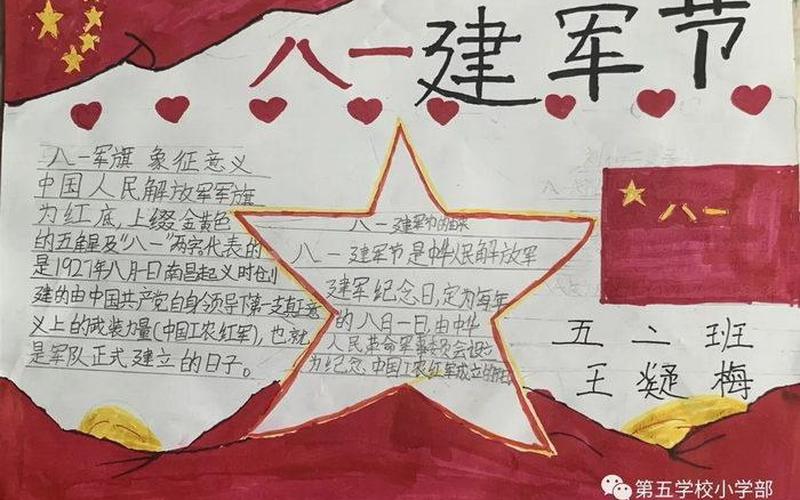 八一建军节
八一军旗 象征意义
中国人民解放军军旗
为红底，上缀金黄色
的五角星及“八一”两字，代表的
是1927年八月一日南昌起义时创
建的由中国共产党自身领导了第一支真正意
义上的武装力量（中国工农红军），也就
是军队正式建立的日子。
八一建军节的由来
八一建军节是中华人民解放军
建军纪念日，定为每年
的八月一日，由中华
人民革命军事委员会设立
为纪念中国工农红军成立的
八一
五二班
王凝梅
第五学校小学部